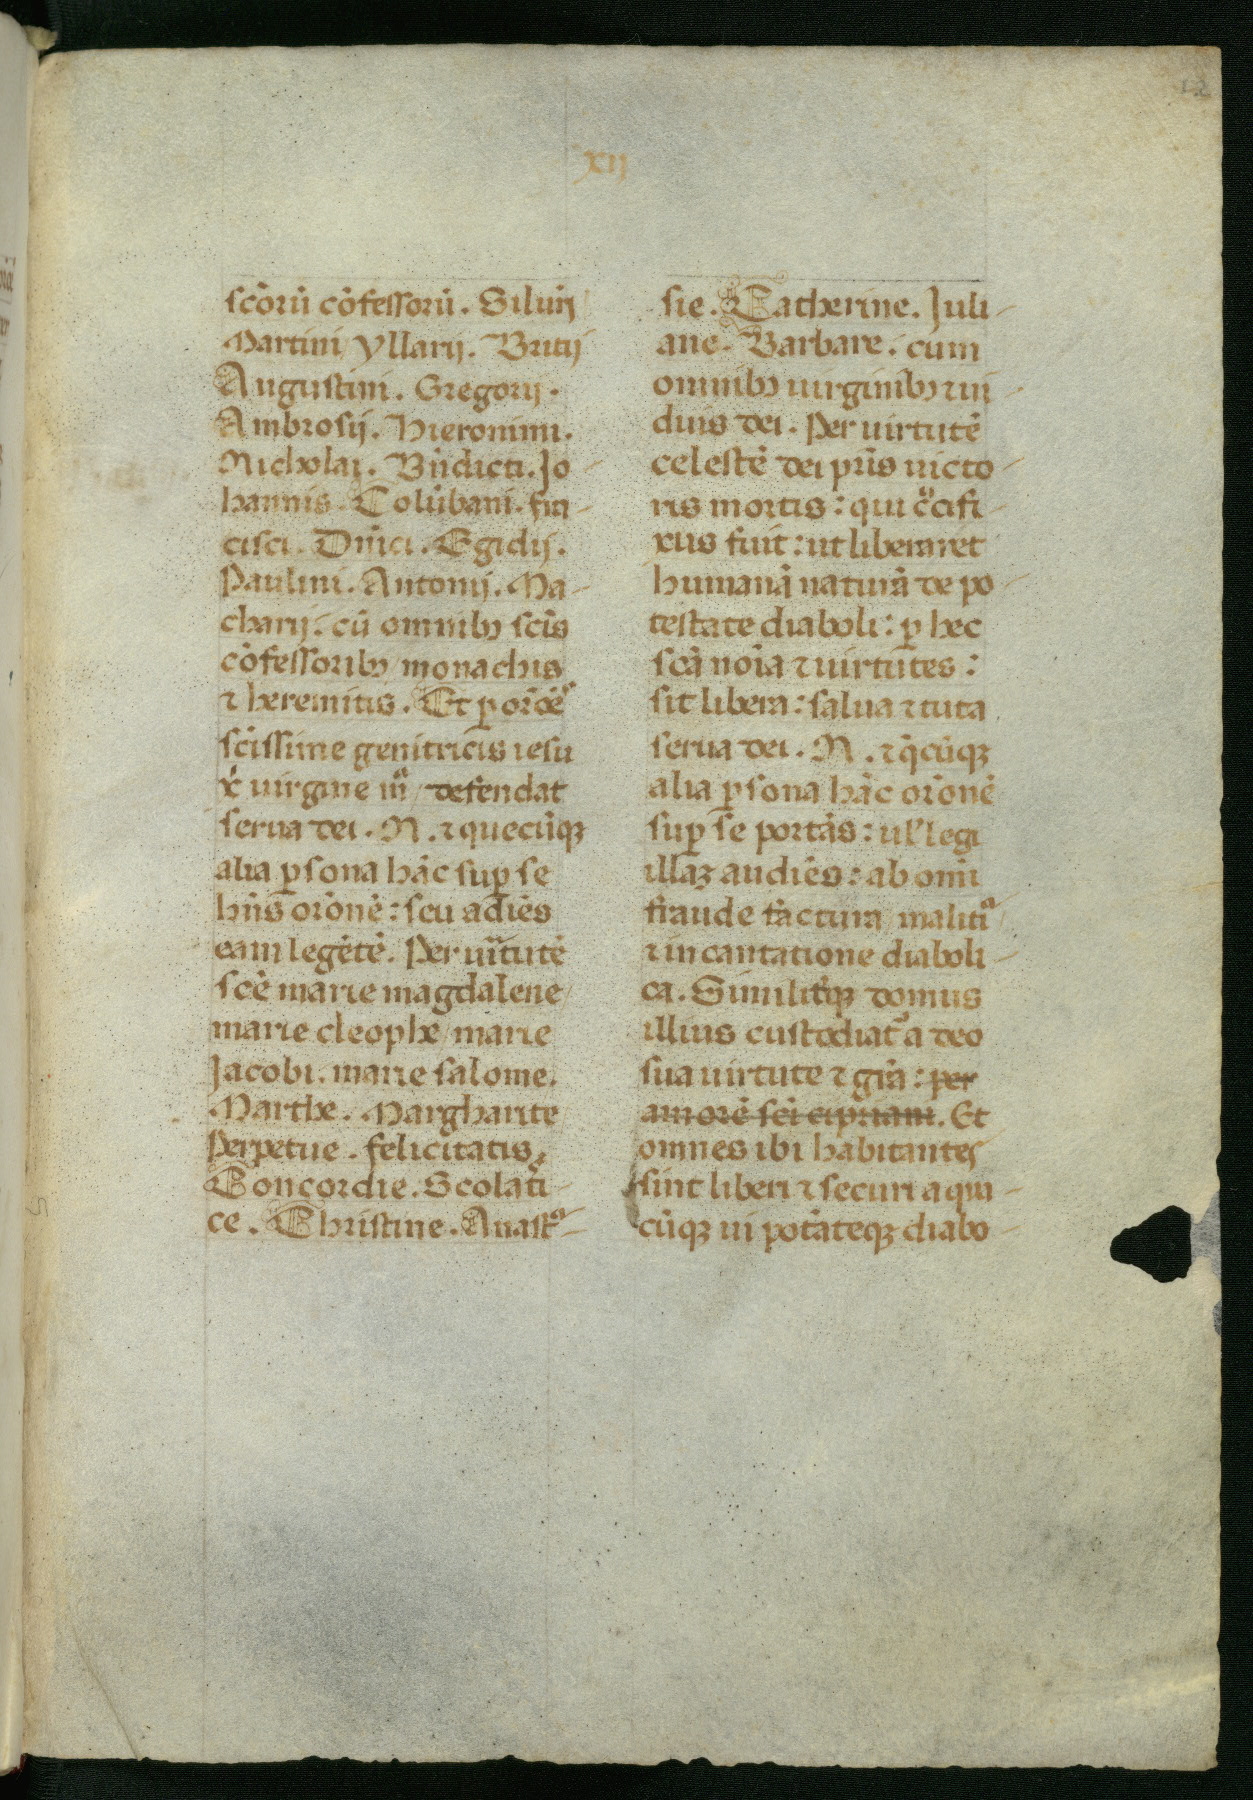 12
xij
scõrũ cõfessorũ. Silur̃ij
Martini yllarij. Britij
Augustini. Gregorij.
Ambrosij. Hieronimi.
Nicholai. Bñdicti. Jo-
hannis. Colũbani. frã-
cisci. Dñici. Egidij.
Paulini. Antonij. Ma-
charij: cũ omnibꝫ scĩs
cõfessoribꝫ/monachis
⁊ heremitis. Et ꝑ orõẽ
scĩssime genitricis iesu
xp̃i uirgine m̃/defendat
serua dei. N. ⁊ quecũqꝫ
alia ꝑsona hãc suꝑ se
hñs orõnẽ: seu adiẽs
eam legẽtẽ. Per uĩtutẽ
scẽ marie magdalene/
marie cleophe/marie
Jacobi. marie salome.
Marthe. Margharite
Perpetue. felicitatis.
Concordie. Scolasti-
ce. Christine. Anasta-
sie. Catherine. Juli-
ane. Barbare. cum
omnibꝫ uirginibꝫ ⁊ ui-
duis dei. Per uirtutẽ
celestẽ dei pr̃is uicto-
ris mortis: qui c̃cifi-
xus fuit: ut liberaret
humanã naturã de po-
testate diaboli: ꝑ hec
scã noĩa ⁊ uirtutes:
sit libera: salua ⁊ tuta
serua dei. N. ⁊ q̃cũqꝫ
alia ꝑsona hãc orõnẽ
suꝑ se portãs: ul' legi
illaꝫ audiẽs: ab omĩ
fraude factura/malitia/
⁊ incantatione diaboli-
ca. Similitr̃qꝫ domus
illius custodiat᷑ a deo
sua uirtute ⁊ grã: per
amorẽ scĩ cipriani. Et
omnes ibi habitantes
sint liberi ⁊ securi a qua-
cũqꝫ ui potẽteqꝫ diabo-